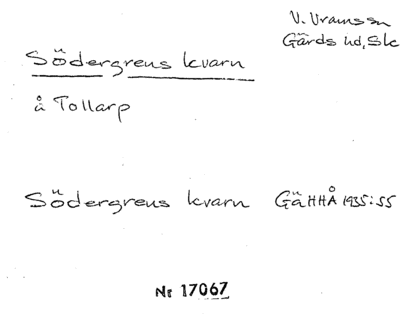 V. Vramssn
Gärds hd, Sk
Södergrens kvarn
å Tollarp
Södergrens kvarn GäHHÅ 1935:55
Nr 17067